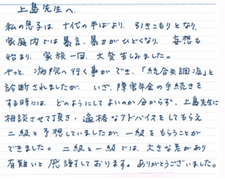 上島先生へ
私の息子は、十代の半ばより、引きこもりとなり、
家庭内では暴言、暴力がひどくなり、妄想も
始まり、家族一同、大変苦しみました。
やっと、病院へ行く事ができ、「統合失調症」と
診断されましたが、いざ、障害年金の手続きを
する時には、どのようにしてよいか分からず、上島先生に
相談させて頂き、適格なアドバイスをしてもらえ
二級と予想していましたが、一級をもらうことが
できました。二級と一級では、大きな差があり
有難いと感謝しております。ありがとうございました。